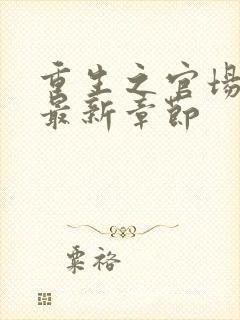 重生之官场
最新章节
粟裕